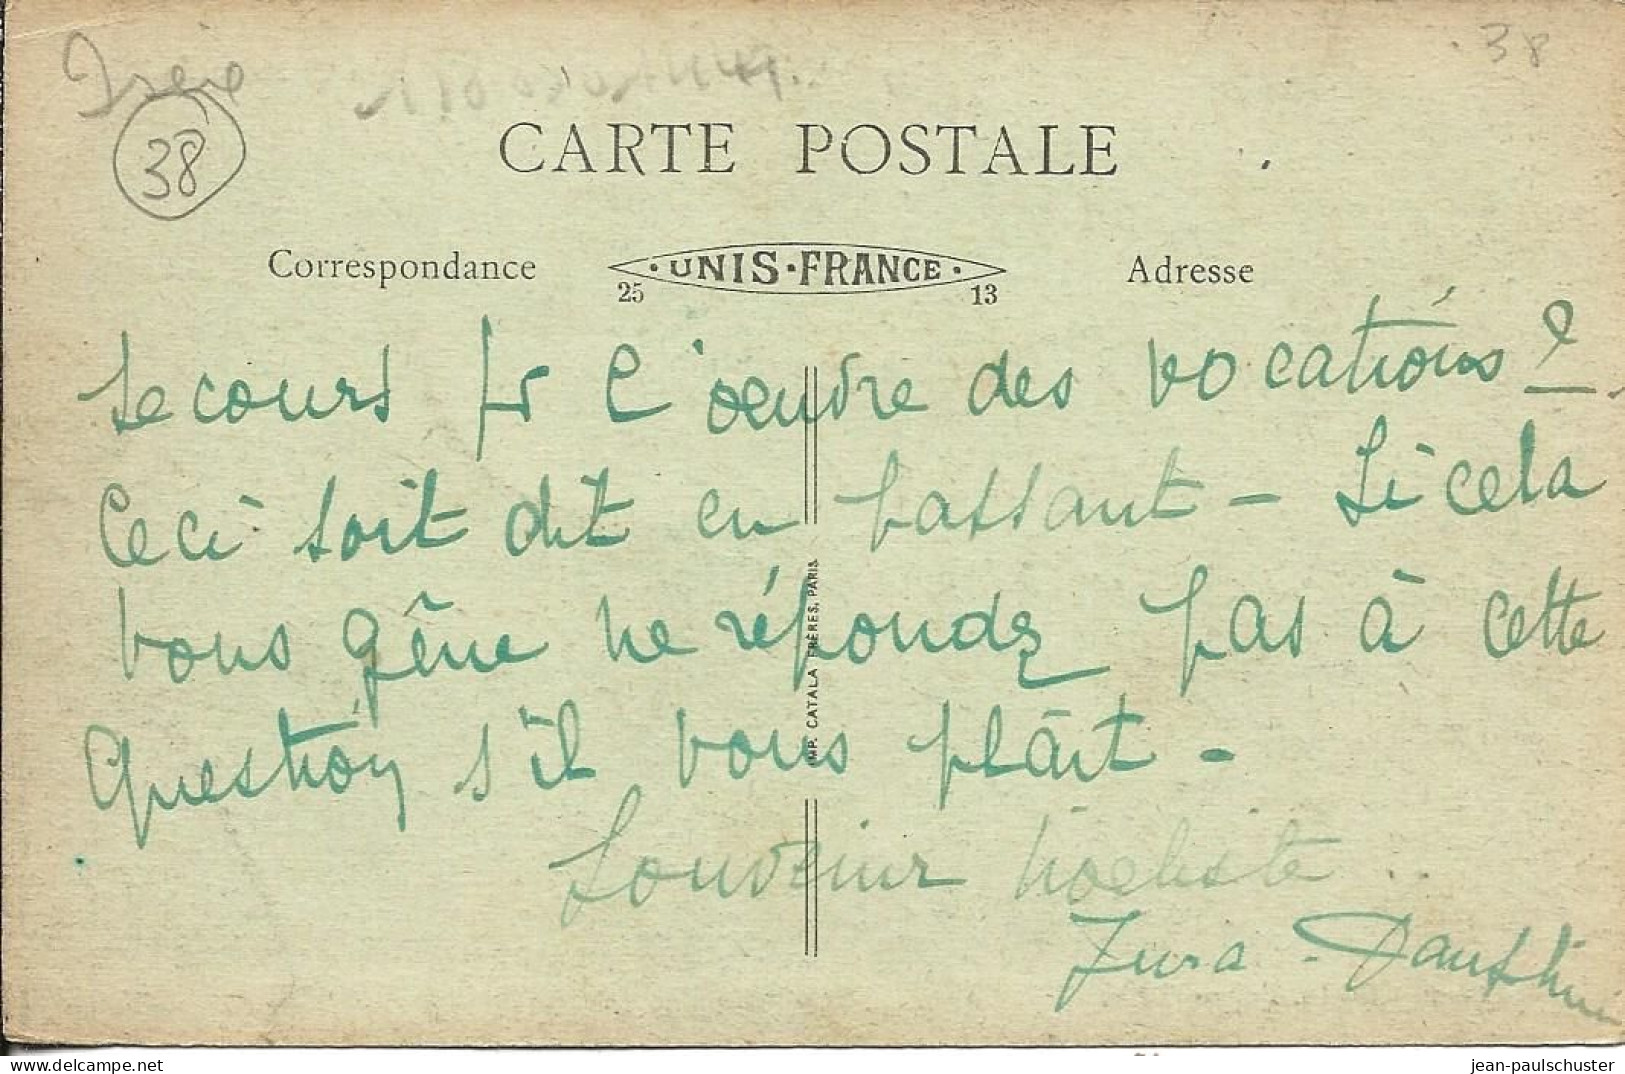 Isère
38
38
CARTE POSTALE
Correspondance
UNIS-FRANCE
Adresse
25
13
secours pr l'oeuvre des vocations ?
Ceci soit dit en passant - Si cela
vous gêne ne répondez pas à cette
question s'il vous plaît -
Souvenir noëliste ..
Jura - Dauphin
IMP. CATALA FRÈRES, PARIS
jean-paulschuster